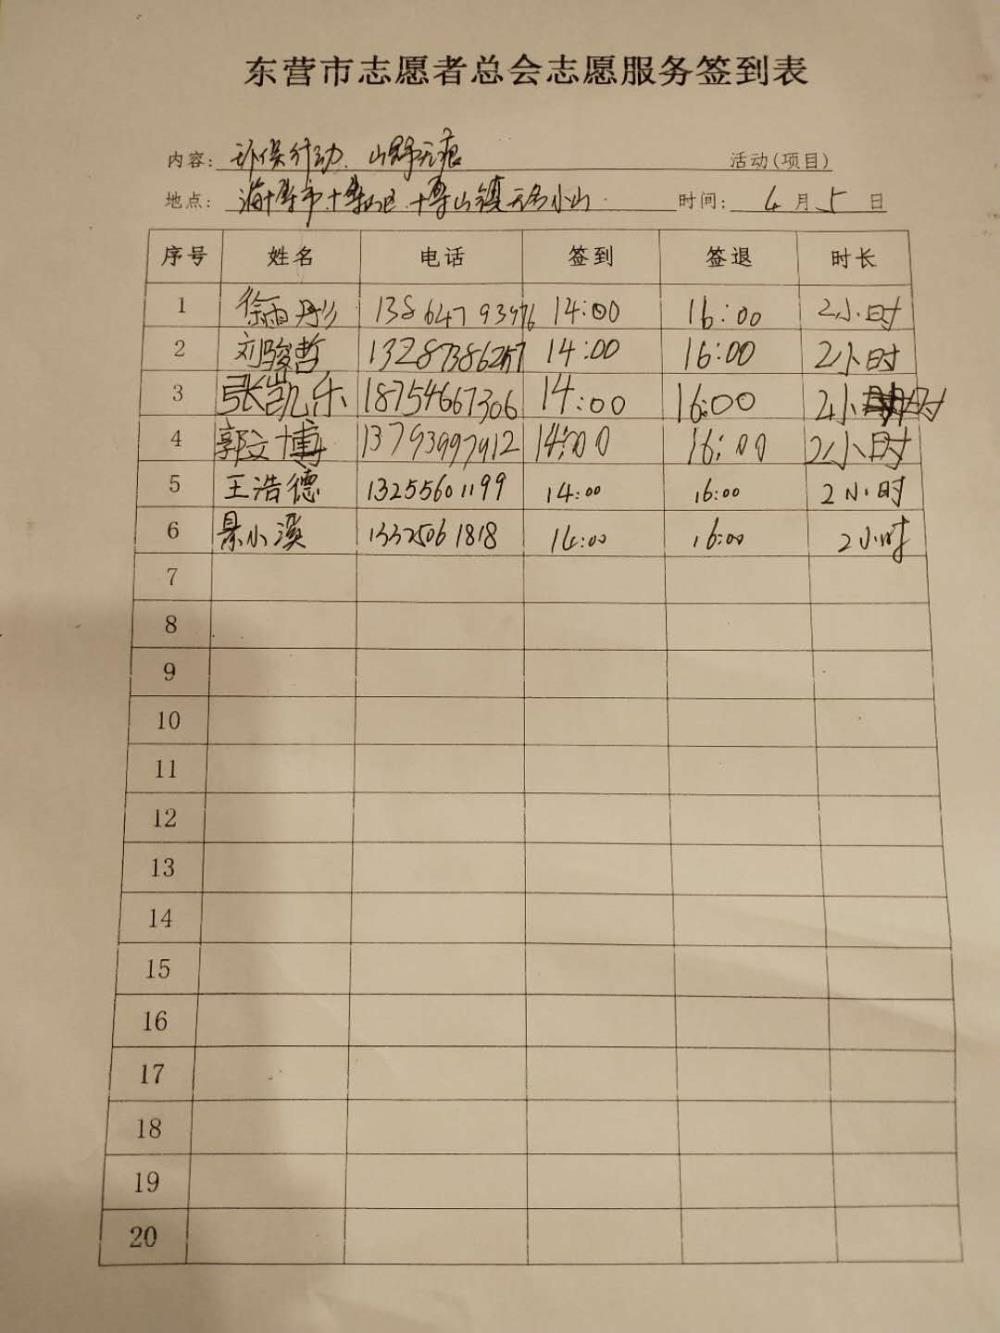 东营市志愿者总会志愿服务签到表
内容: 环保行动、山野无痕 活动(项目)
地点: 淄博市博山区博山镇无名小山. 时间: 4月5日
序号 姓名 电话 签到 签退 时长
1 徐雨彤 13864793976 14:00 16:00 2小时
2 刘骏哲 13287386257 14:00 16:00 2小时
3 张凯乐 18754667306 14:00 16:00 2小时
4 郭文博 13793997912 14:00 16:00 2小时
5 王浩德 13255601199 14:00 16:00 2小时
6 小溪 13325061818 14:00 16:00 2小时
7
8
9
10
11
12
13
14
15
16
17
18
19
20